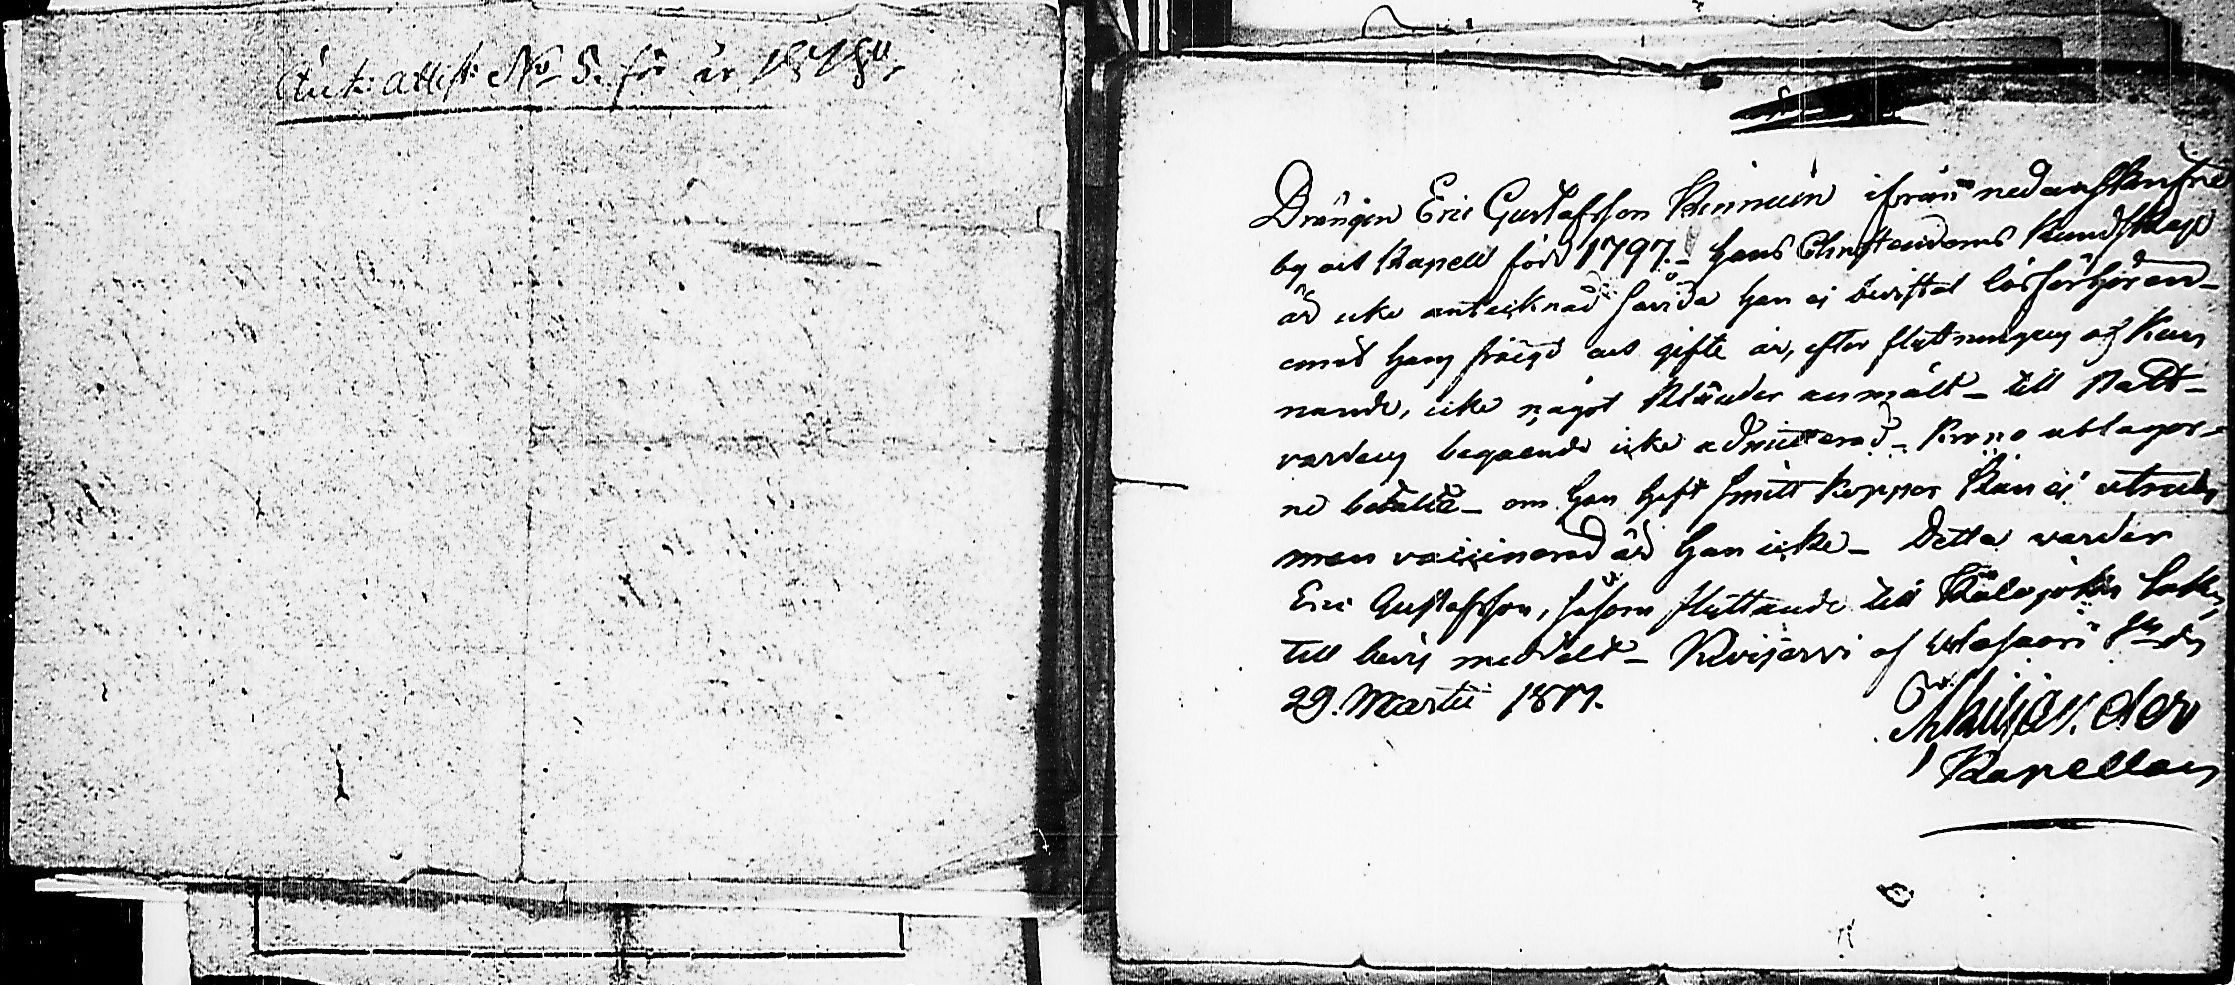 Ank: attest: No 5. för år 1818.
Drängen Eric Gustafsson Kinnuin ifrån nedanskrefne
by ack Kapell född 1797.- hans Christendoms Kundskap
är icke antecknad savida han ej bevistat läsförhören-
emot hans frägd ack gifte är, efter flyttningen af Kin
nande, icke något Klander anmält - till Natt-
varden begaende icke admitterad - Krono utlagor-
ne betalta - om han haft Smitt koppor kan ei utredas
men vaccinerad är han icke - Detta varder
Eric Gustafsson, såsom flyttande till Kälajoki Sokn
till bevis meddelt - Kivijärvi af Wasa 
29. Martii 1817.
Kapellan